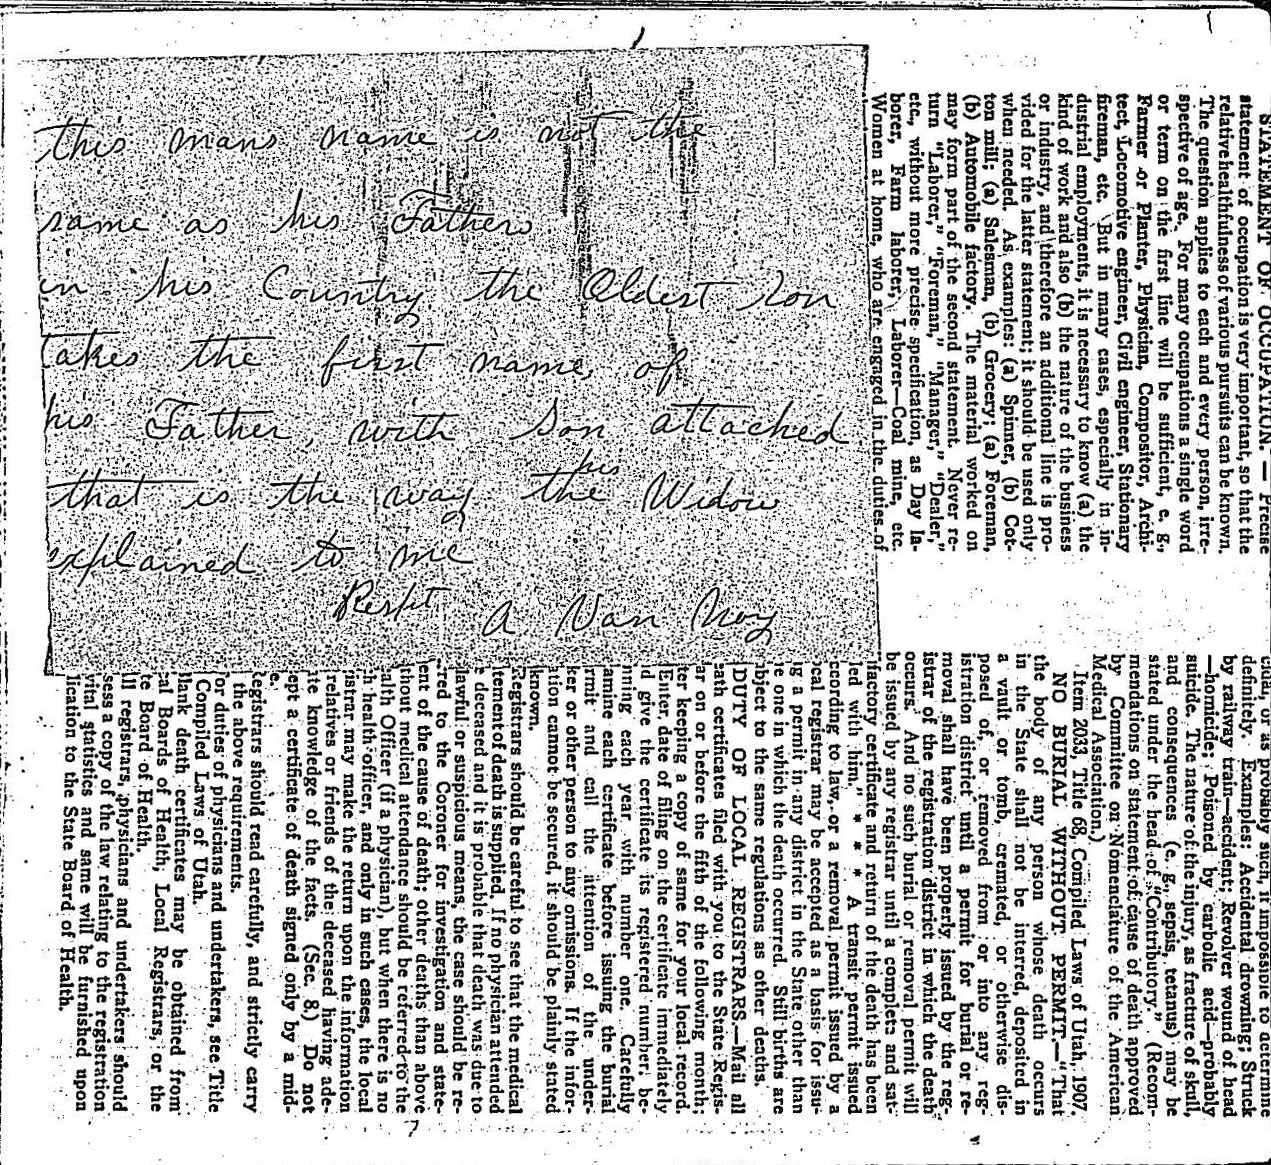 this mans name is not the
same as his Fathers
in his Country the Oldest Son
takes the first name of
his Father, with Son attached
that is the way the his Widow
explained to me
Respt A Van Noy
STATEMENT OF OCCUPATION. — Precise
statement of occupation is very important, so that the
relative healthfulness of various pursuits can be known.
The question applies to each and every person, irre-
spective of age. For many occupations a single word
or term on the first line will be sufficient, e. g.,
Farmer or Planter, Physician, Compositor, Archi-
tect, Locomotive engineer, Civil engineer, Stationary
fireman, etc. But in many cases, especially in in-
dustrial employments, it is necessary to know (a) the
kind of work and also (b) the nature of the business
or industry, and therefore an additional line is pro-
vided for the latter statement; it should be used only
when needed. As examples: (a) Spinner, (b) Cot-
ton mill; (a) Salesman, (b) Grocery; (a) Foreman,
(b) Automobile factory. The material worked on
may form part of the second statement. Never re-
turn "Laborer," "Foreman," "Manager," "Dealer,"
etc., without more precise specification, as Day la-
borer, Farm laborer, Laborer—Coal mine, etc.
Women at home, who are engaged in the duties of
cidal, or as probably such, if impossible to determine
definitely. Examples: Accidental drowning; Struck
by railway train—accident; Revolver wound of head
—homicide; Poisoned by carbolic acid—probably
suicide. The nature of the injury, as fracture of skull,
and consequences (e. g., sepsis, tetanus) may be
stated under the head of "Contributory." (Recom-
mendations on statement of cause of death approved
by Committee on Nomenclature of the American
Medical Association.)
Item 2033, Title 68, Compiled Laws of Utah, 1907.
NO BURIAL WITHOUT PERMIT.—"That
the body of any person whose death occurs
in the State shall not be interred, deposited in
a vault or tomb, cremated, or otherwise dis-
posed of, or removed from or into any reg-
istration district until a permit for burial or re-
moval shall have been properly issued by the reg-
istrar of the registration district in which the death
occurs. And no such burial or removal permit will
be issued by any registrar until a complete and sat-
isfactory certificate and return of the death has been
led with him." * * * A transit permit issued
ccording to law, or a removal permit issued by a
cal registrar may be accepted as a basis for issu-
g a permit in any district in the State other than
e one in which the death occurred. Still births are
bject to the same regulations as other deaths.
DUTY OF LOCAL REGISTRARS.—Mail all
eath certificates filed with you to the State Regis-
ar on or before the fifth of the following month;
ter keeping a copy of same for your local record.
Enter date of filing on the certificate immediately
d give the certificate its registered number, be-
nning each year with number one. Carefully
amine each certificate before issuing the burial
rmit and call the attention of the under-
ker or other person to any omissions. If the infor-
ation cannot be secured, it should be plainly stated
known.
Registrars should be careful to see that the medical
tement of death is supplied. If no physician attended
e deceased and it is probable that death was due to
lawful or suspicious means, the case should be re-
rred to the Coroner for investigation and state-
ent of the cause of death; other deaths than above
thout medical attendance should be referred to the
alth Officer (if a physician), but when there is no
h health officer, and only in such cases, the local
istrar may make the return upon the information
relatives or friends of the deceased having ade-
te knowledge of the facts. (Sec. 8.) Do not
ept a certificate of death signed only by a mid-
e.
Registrars should read carefully, and strictly carry
the above requirements.
or duties of physicians and undertakers, see Title
Compiled Laws of Utah.
lank death certificates may be obtained from
cal Boards of Health, Local Registrars, or the
te Board of Health.
ll registrars, physicians and undertakers should
ses a copy of the law relating to the registration
vital statistics and same will be furnished upon
lication to the State Board of Health.